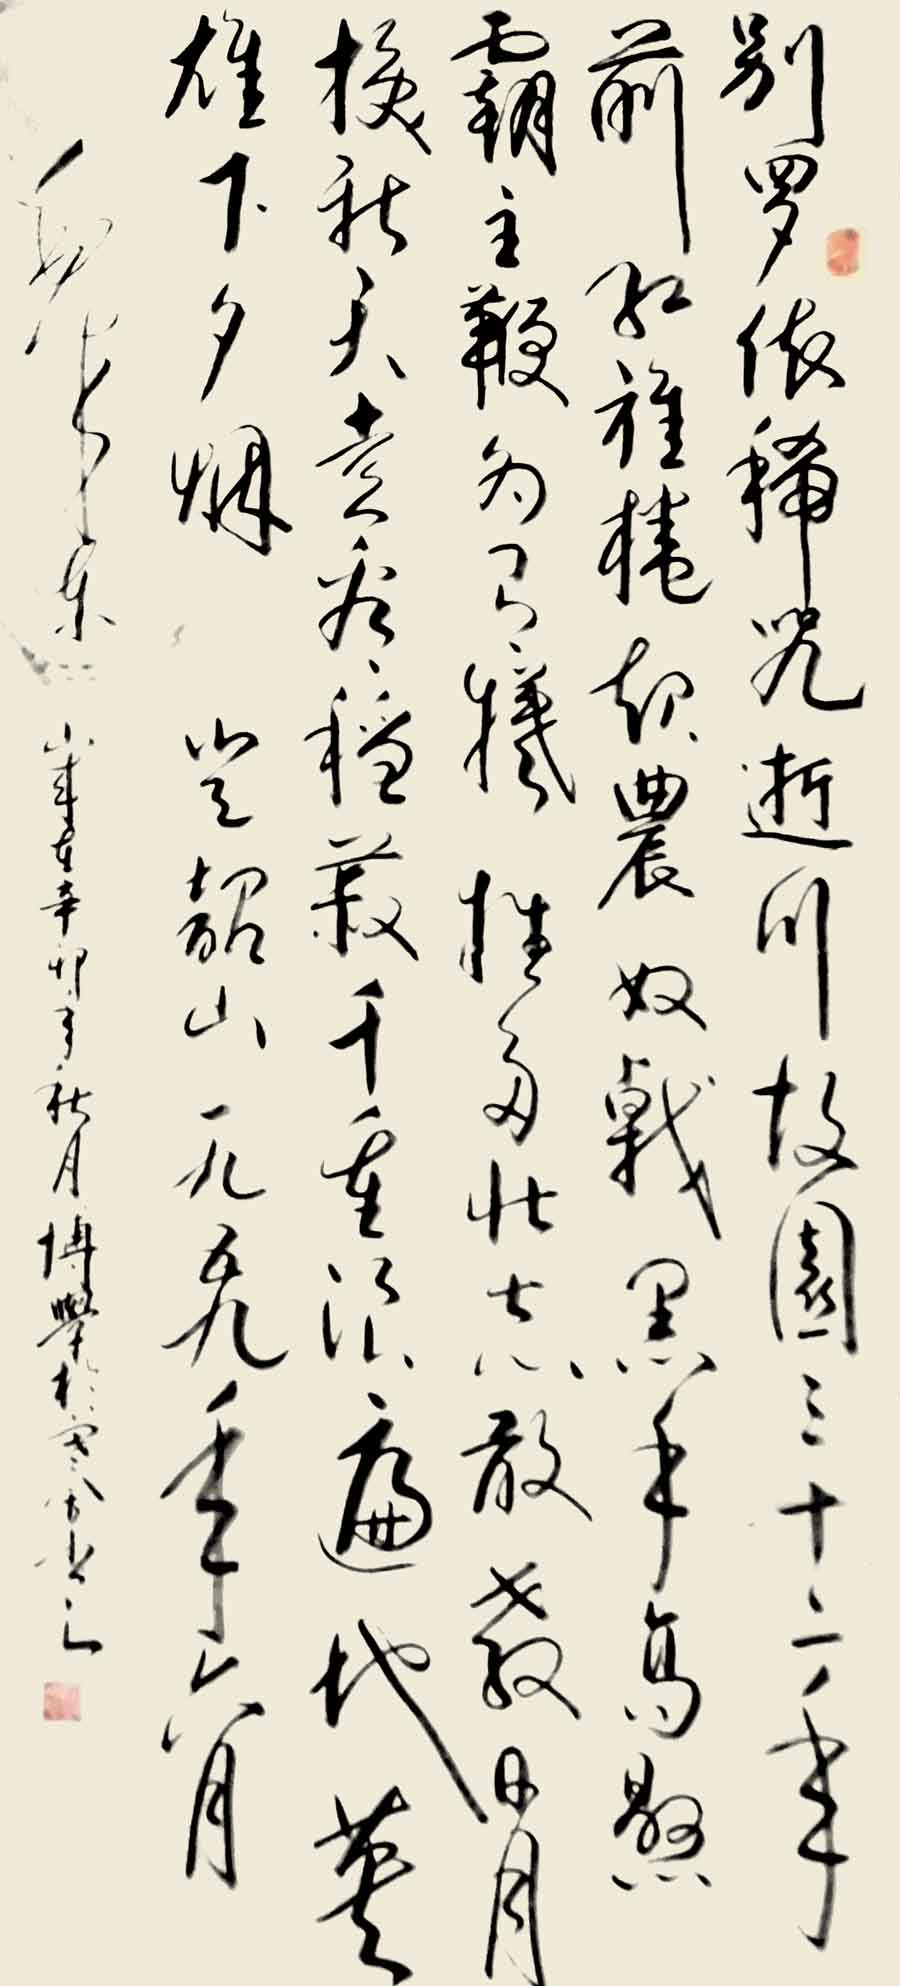 别夢依稀咒逝川故園三十二年
前红旗捲起農奴戟黑手高懸
霸主鞭为有犧牲多壮志敢教日月
换新天喜看稻菽千重浪遍地英
雄下夕烟 到韶山一九五九年六月
毛泽东 歲在辛卯年秋月博學於寒舍书之